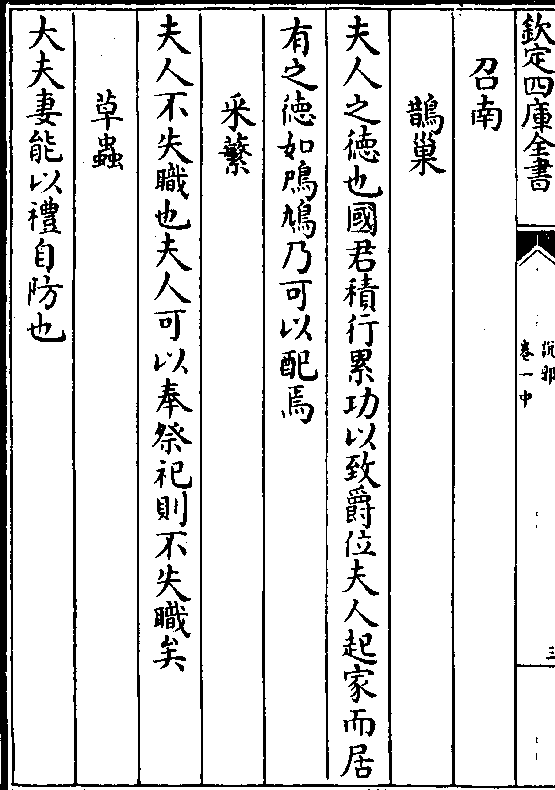 欽定四庫全書
卷一中
三
召南
鵲巢
夫人之徳也國君積行累功以致爵位夫人起家而居
有之徳如鳲鳩乃可以配焉
采蘩
夫人不失職也夫人可以奉祭祀則不失職矣
草蟲
大夫妻能以禮自防也